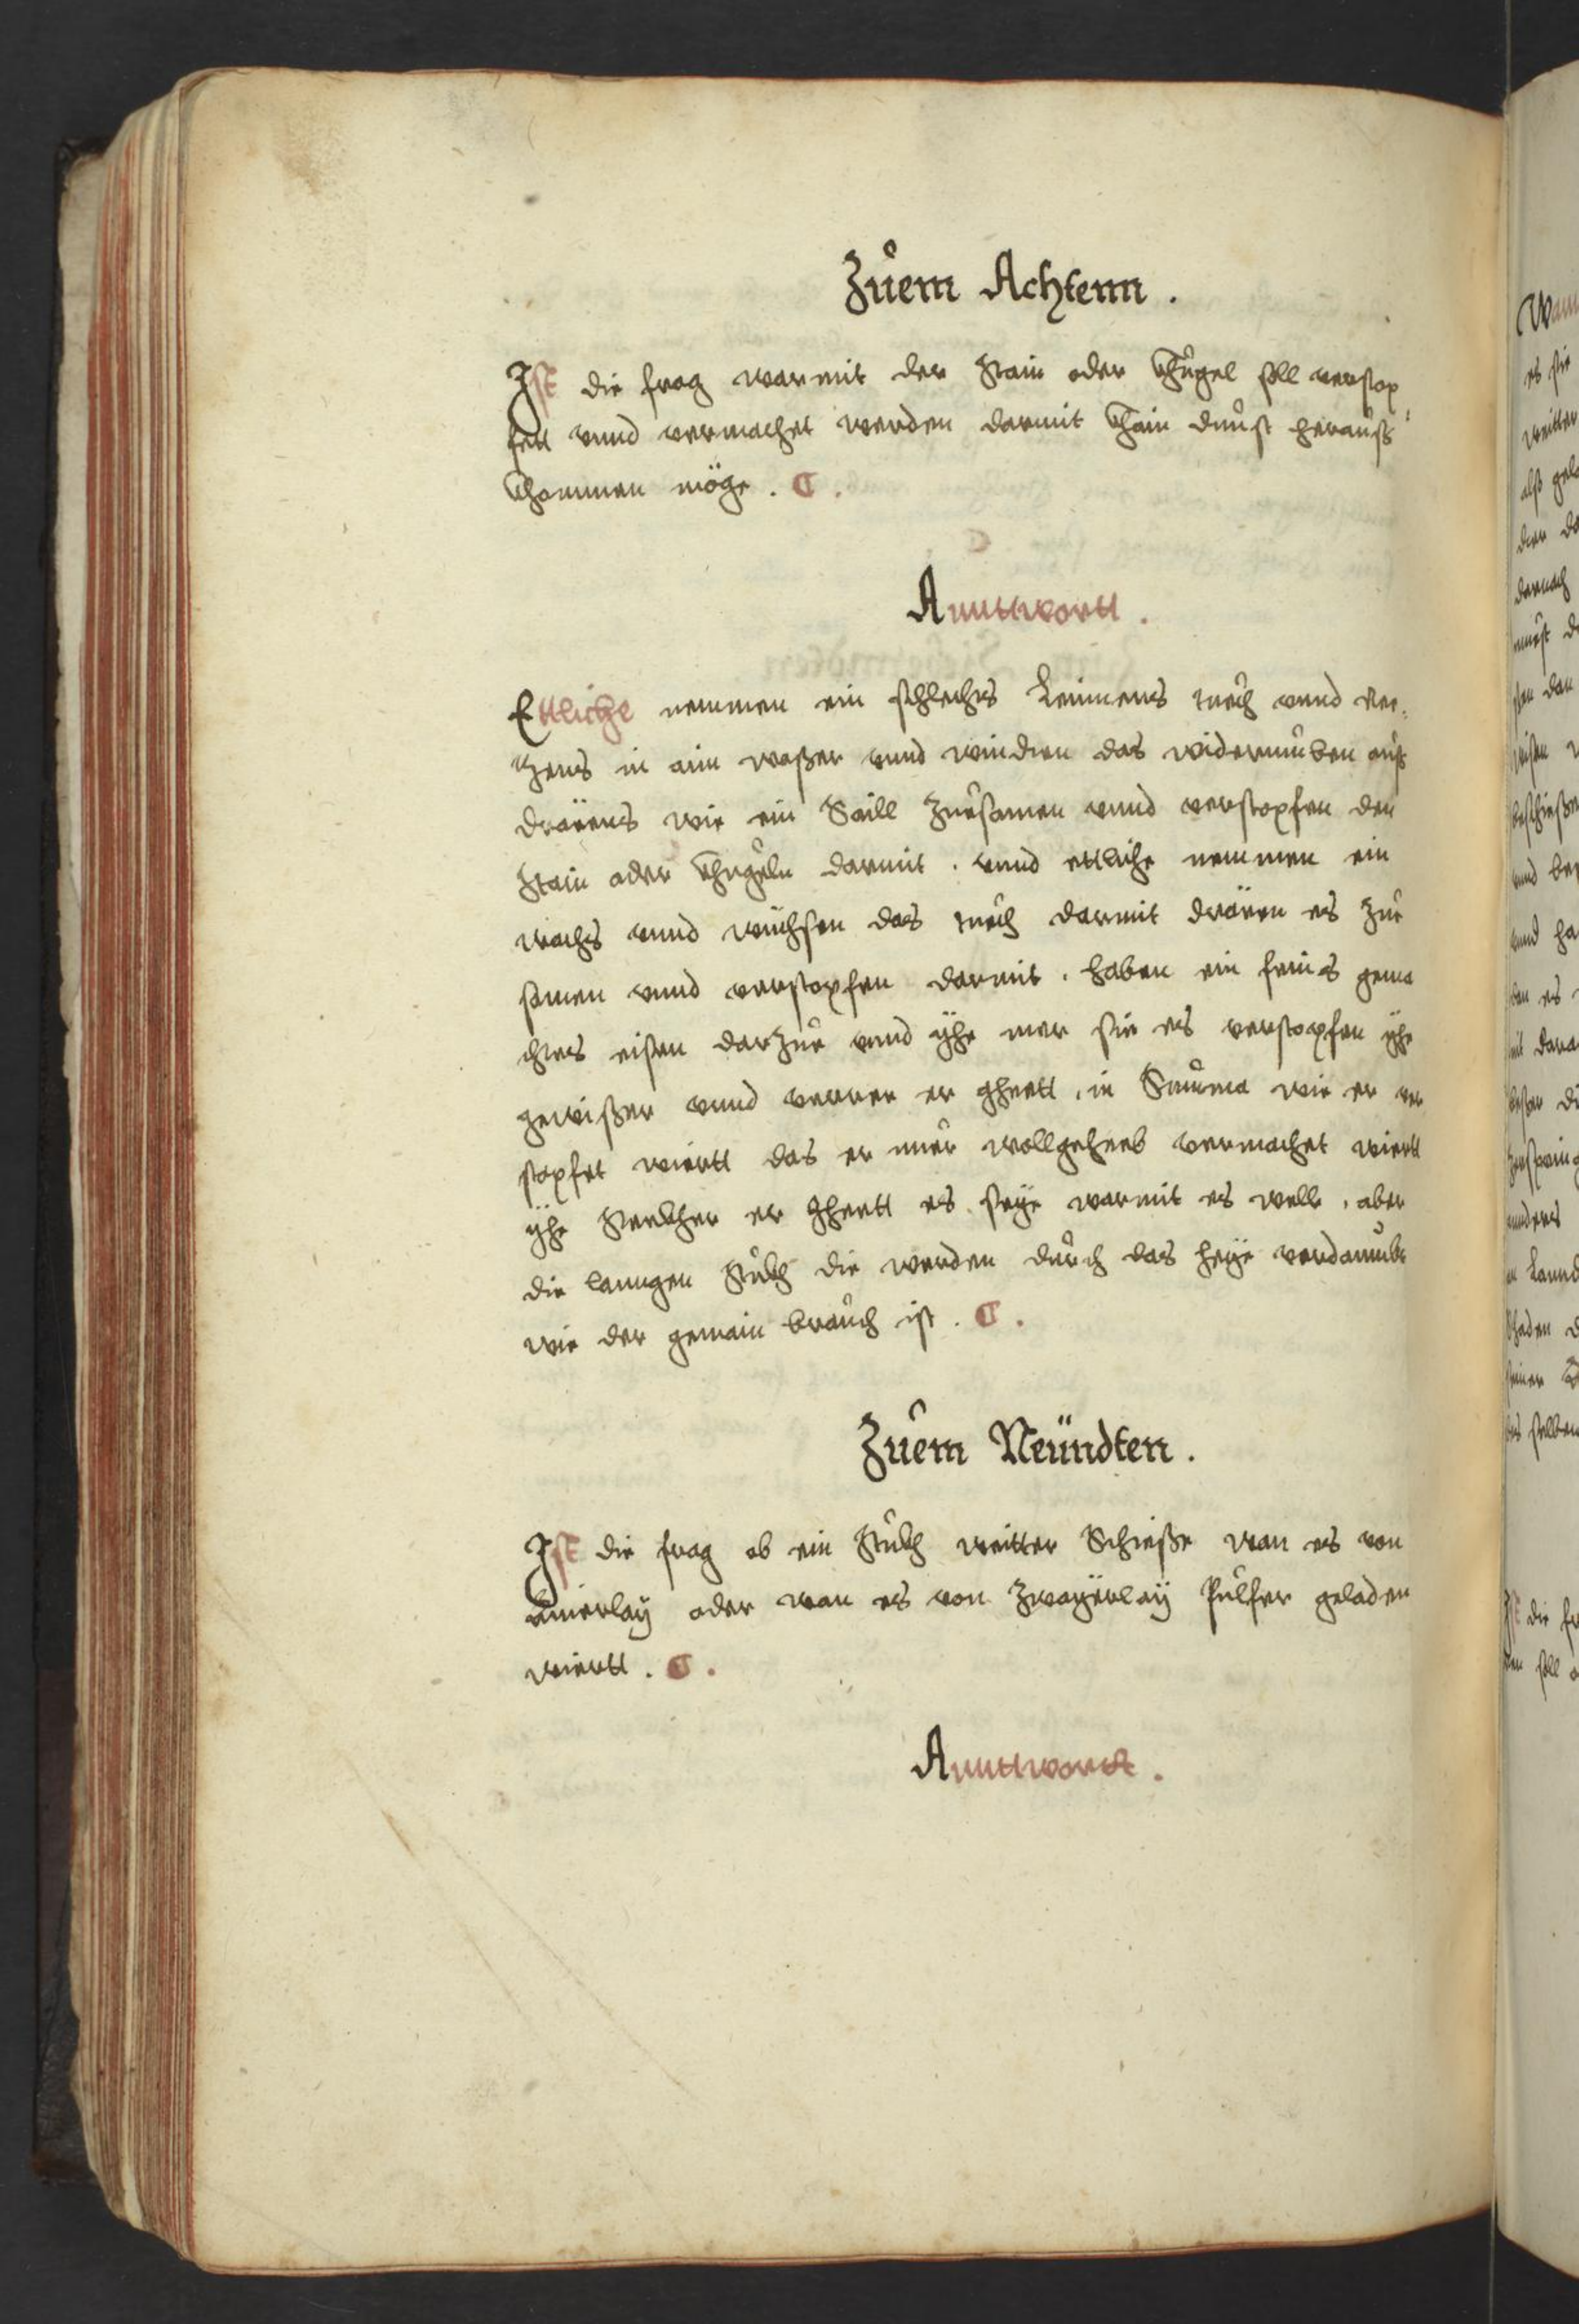 Zůem Achtenn.
Ist die frag warmit der stain oder khůgel soll verstop
fett vnnd vermachet werden darmit khain dunst heraůß
khommen möge.
Anntwortt.
Ettliche nemmen ein schlechts Leinnens tuech vnnd
in ain waßer vnnd winden das widerumben auß
dräens wie ein Saill zuesamen vnnd verstopfen den
stain oder khugeln darmit. vnnd ettliche nemmen ein
wachs vnnd wüchsen das tuech darmit dräen es zue
samen vnnd verstopfen darmit. haben ein feins gema
chtes eisen darzue vnnd yhe mer sie es verstopfen yhe
gewißer vnnd verrer er gheett. in Summa wie er ver
stopfet wiertt das er nuer wollgeheeb vermachet wiertt
yhe sterkher er gheett es seye warmit es welle. aber
die lanngen stukh die werden dürch das heye verdambt
wie der gemain braůch ist.
Zůem Neündten.
Ist die frag ob ein stukh weitter Schieße wan es von
ainerlay oder wan es von zwayerlay Pulfer geladen
wiertt.
Anntwortt.